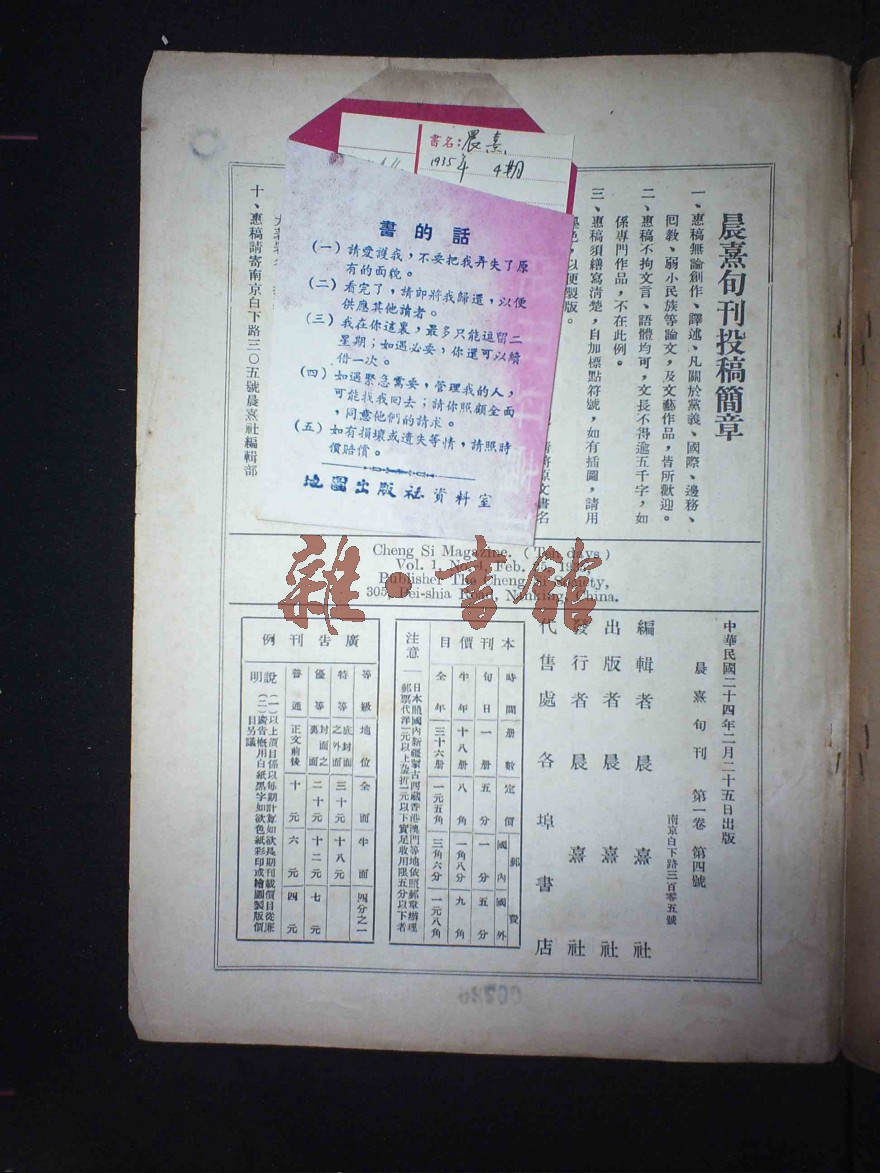 晨熹旬刊投稿簡章
一、惠稿無論創作、譯述、凡關於黨義、國際、邊務、
回敎、弱小民族等論文，及文藝作品，皆所歡迎。
二、惠稿不拘文言、語體均可，文長不得逾五千字，如
係專門作品，不在此例。
三、惠稿須繕寫淸楚，自加標點符號，如有插圖，請用
墨色，以便製版。
將原文書名
十、惠稿請寄南京白下路三〇五號晨熹社編輯部
書名：晨熹
1935年 4期
書的話
（一）請愛護我，不要把我弄失了原
有的面貌。
（二）看完了，請卽將我歸還，以便
供應其他讀者。
（三）我在你這裏，最多只能逗留二
星期；如遇必要，你還可以續
借一次。
（四）如遇緊急需要，管理我的人，
可能找我回去；請你照顧全面
，同意他們的請求。
（五）如有損壞或遺失等情，請照時
價賠償。
地圖出版社資料室
Cheng Si Magazine. (Ten days)
Vol. 1, No. 4, Feb. 25, 1935,
Publisher The Cheng Si Society,
305, Pei-shia Road, Nanking, China.
雜·書館
中華民國二十四年二月二十五日出版
晨熹旬刊 第一卷 第四號
南京白下路三百零五號
編輯者 晨熹社
出版者 晨熹社
發行者 晨熹社
代售處 各埠書店
本刊價目
時間 册數 定價 郵費 國內 國外
旬日 一册 五分 一分 五分
半年 十八册 八角 一角八分 九角
全年 三十六册 一元五角 三角六分 一元八角
注意
日本照國內新疆蒙古西藏香港澳門等地依照郵章辦理
郵票代洋二元以上壹折一元以下實足收用限五分以下者
廣告刊例
等級 地位 全面 半面 四分之一
特等 底封面之外面 三十元 十八元
優等 封面之裏面 二十元 十二元 七元
普通 正文前後 十元 六元 四元
說明
（一）以上價目係以每期計算如欲長期刊載價目從廉
（二）廣告槪用白紙黑字如欲色紙彩印或繪圖製版價
目另議